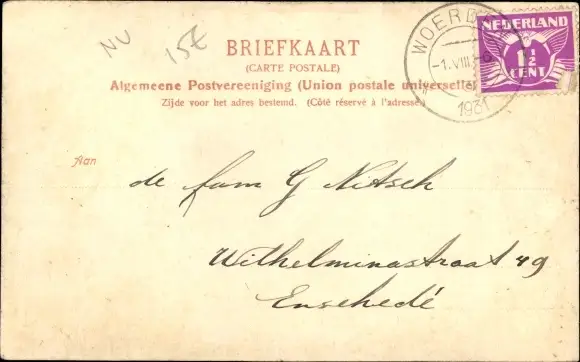 NU 15€
BRIEFKAART
(CARTE POSTALE)
Algemeene Postvereeniging (Union postale universelle)
Zijde voor het adres bestemd. (Côté réservé à l'adresse.)
WOERDEN
-1.VIII
1931
NEDERLAND
1½
CENT
Aan
de fam G Nitsch
Wilhelminastraat 49
Enschedé